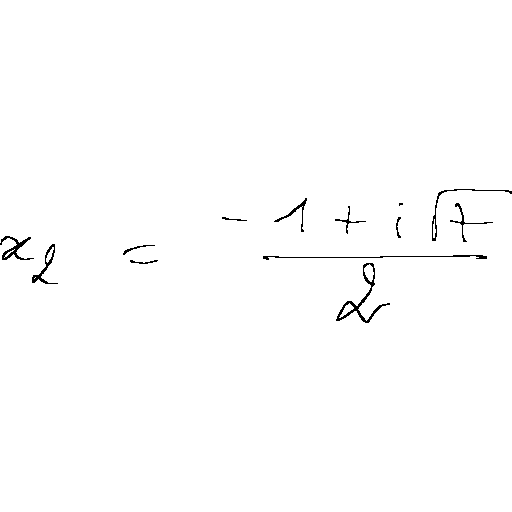 x_2 = \frac{-1 + i\sqrt{7}}{2}